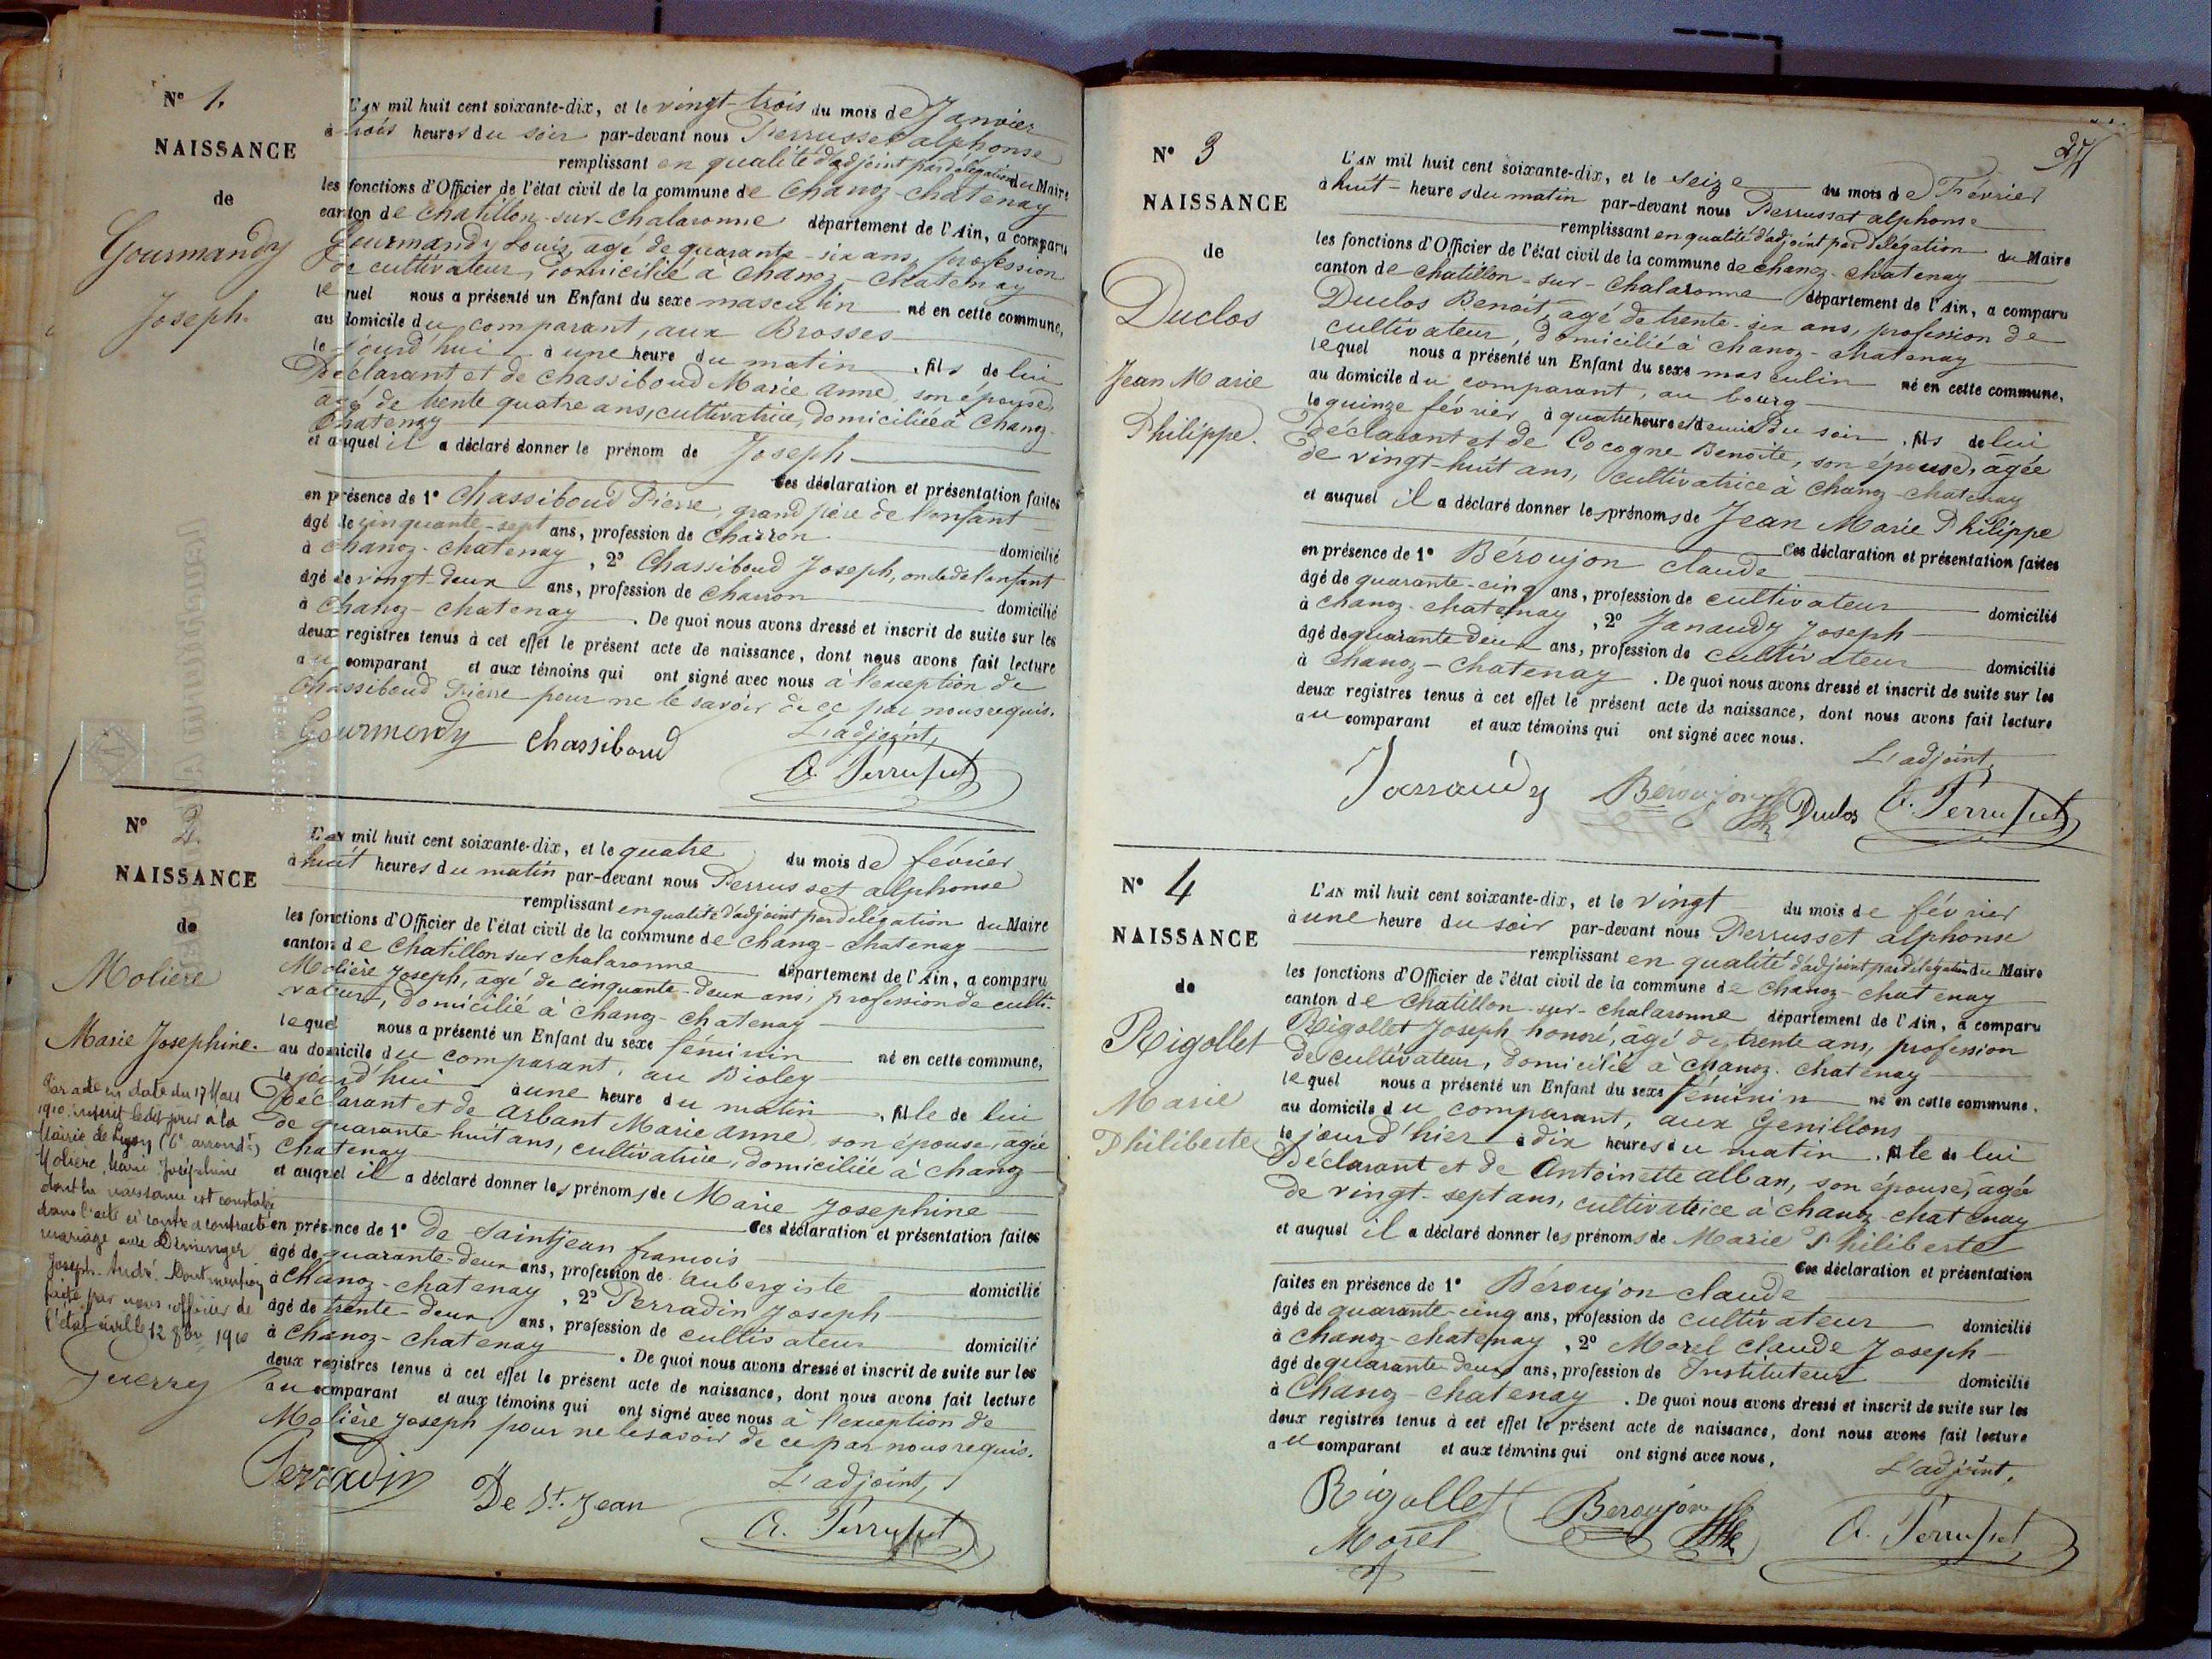 N° 1.
NAISSANCE
de
Gourmandy
Joseph.
L'AN mil huit cent soixante-dix, et le vingt-trois du mois de Janvier
à trois heures du soir par-devant nous Perrusset alphonse
remplissant en qualité d'adjoint par délégation du Maire
les fonctions d'Officier de l'état civil de la commune de Chanoz-Chatenay
canton de Chatillon-sur-Chalaronne département de l'Ain, a comparu
Gourmandy Louis, agé de quarante-six ans, profession
de cultivateur, domicilié à Chanoz-Chatenay
lequel nous a présenté un Enfant du sexe masculin né en cette commune,
au domicile du comparant, aux Brosses
le jourd'hui à une heure du matin, fils de lui
Déclarant et de Chassiboud Marie Anne, son épouse,
agé de trente quatre ans, cultivatrice, domiciliée à Chanoz-
Chatenay
et auquel il a déclaré donner le prénom de Joseph
Ces déclaration et présentation faites
en présence de 1° Chassiboud Pierre, grand père de l'enfant
âgé de cinquante-sept ans, profession de Charron domicilié
à Chanoz-Chatenay, 2° Chassiboud Joseph, oncle de l'enfant
âgé de vingt-deux ans, profession de Charron domicilié
à Chanoz-Chatenay. De quoi nous avons dressé et inscrit de suite sur les
deux registres tenus à cet effet le présent acte de naissance, dont nous avons fait lecture
au comparant et aux témoins qui ont signé avec nous à l'exception de
Chassiboud Pierre pour ne le savoir de ce par nous requis.
Gourmandy Chassiboud L'adjoint,
A. Perrusset
N° 2.
NAISSANCE
de
Molière
Marie Josephine.
Par acte en date du 17 Mars
1910 inscrit le dit jour à la
Mairie de Lyon (6e arrondt)
Molière, Marie Joséphine
dont la naissance est constatée
dans l'acte ci contre a contracté
mariage avec Deminger
Joseph André. Dont mention
faite par nous officier de
l'état civil le 12 8bre 1910
Guerry
L'AN mil huit cent soixante-dix, et le quatre du mois de février
à huit heures du matin par-devant nous Perrusset alphonse
remplissant en qualité d'adjoint par délégation du Maire
les fonctions d'Officier de l'état civil de la commune de Chanoz-Chatenay
canton de Chatillon sur Chalaronne département de l'Ain, a comparu
Molière Joseph, agé de cinquante-deux ans, profession de culti-
vateur, domicilié à Chanoz-Chatenay
lequel nous a présenté un Enfant du sexe féminin né en cette commune,
au domicile du comparant, au Bioley
le jourd'hui à une heure du matin, fille de lui
Déclarant et de Arbant Marie Anne, son épouse, agée
de quarante-huit ans, cultivatrice, domiciliée à Chanoz-
Chatenay
et auquel il a déclaré donner les prénoms de Marie Josephine
Ces déclaration et présentation faites
en présence de 1° De Saintjean francois
âgé de quarante-deux ans, profession de aubergiste domicilié
à Chanoz-Chatenay, 2° Perradin Joseph
âgé de trente-deux ans, profession de cultivateur domicilié
à Chanoz-Chatenay. De quoi nous avons dressé et inscrit de suite sur les
deux registres tenus à cet effet le présent acte de naissance, dont nous avons fait lecture
au comparant et aux témoins qui ont signé avec nous à l'exception de
Molière Joseph pour ne le savoir de ce par nous requis.
Perradin De St. Jean L'adjoint,
A. Perrusset
N° 3
NAISSANCE
de
Duclos
Jean Marie
Philippe.
L'AN mil huit cent soixante-dix, et le seize du mois de Février
à huit heures du matin par-devant nous Perrusset alphonse
remplissant en qualité d'adjoint par délégation du Maire
les fonctions d'Officier de l'état civil de la commune de Chanoz-Chatenay
canton de Chatillon-sur-Chalaronne département de l'Ain, a comparu
Duclos Benoit, agé de trente-six ans, profession de
cultivateur, domicilié à Chanoz-Chatenay
lequel nous a présenté un Enfant du sexe masculin né en cette commune,
au domicile du comparant, au bourg
le quinze février, à quatre heures et demie du soir, fils de lui
Déclarant et de Cocogne Benoite, son épouse, âgée
de vingt-huit ans, cultivatrice à Chanoz-Chatenay
et auquel il a déclaré donner les prénoms de Jean Marie Philippe
Ces déclaration et présentation faites
en présence de 1° Béroujon Claude
âgé de quarante-cinq ans, profession de cultivateur domicilié
à Chanoz-Chatenay, 2° Janaudy Joseph
âgé de quarante deux ans, profession de cultivateur domicilié
à Chanoz-Chatenay. De quoi nous avons dressé et inscrit de suite sur les
deux registres tenus à cet effet le présent acte de naissance, dont nous avons fait lecture
au comparant et aux témoins qui ont signé avec nous.
L'adjoint,
Béroujon Duclos A. Perrusset
N° 4
NAISSANCE
de
Rigollet
Marie
Philiberte
L'AN mil huit cent soixante-dix, et le vingt du mois de février
à une heure du soir par-devant nous Perrusset alphonse
remplissant en qualité d'adjoint par délégation du Maire
les fonctions d'Officier de l'état civil de la commune de Chanoz-Chatenay
canton de Chatillon-sur-Chalaronne département de l'Ain, a comparu
Rigollet Joseph honoré, âgé de trente ans, profession
de cultivateur, domicilié à Chanoz-Chatenay
lequel nous a présenté un Enfant du sexe féminin né en cette commune,
au domicile du comparant, aux Genillons
le jour d'hier à dix heures du matin, fille de lui
Déclarant et de Antoinette Alban, son épouse, agée
de vingt-sept ans, cultivatrice à Chanoz-Chatenay
et auquel il a déclaré donner les prénoms de Marie Philiberte
Ces déclaration et présentation
faites en présence de 1° Béroujon Claude
âgé de quarante-cinq ans, profession de cultivateur domicilié
à Chanoz-Chatenay, 2° Morel Claude Joseph
âgé de quarante-deux ans, profession de Instituteur domicilié
à Chanoz-Chatenay. De quoi nous avons dressé et inscrit de suite sur les
deux registres tenus à cet effet le présent acte de naissance, dont nous avons fait lecture
au comparant et aux témoins qui ont signé avec nous.
L'adjoint,
Rigollet Beroujon A. Perrusset
Morel